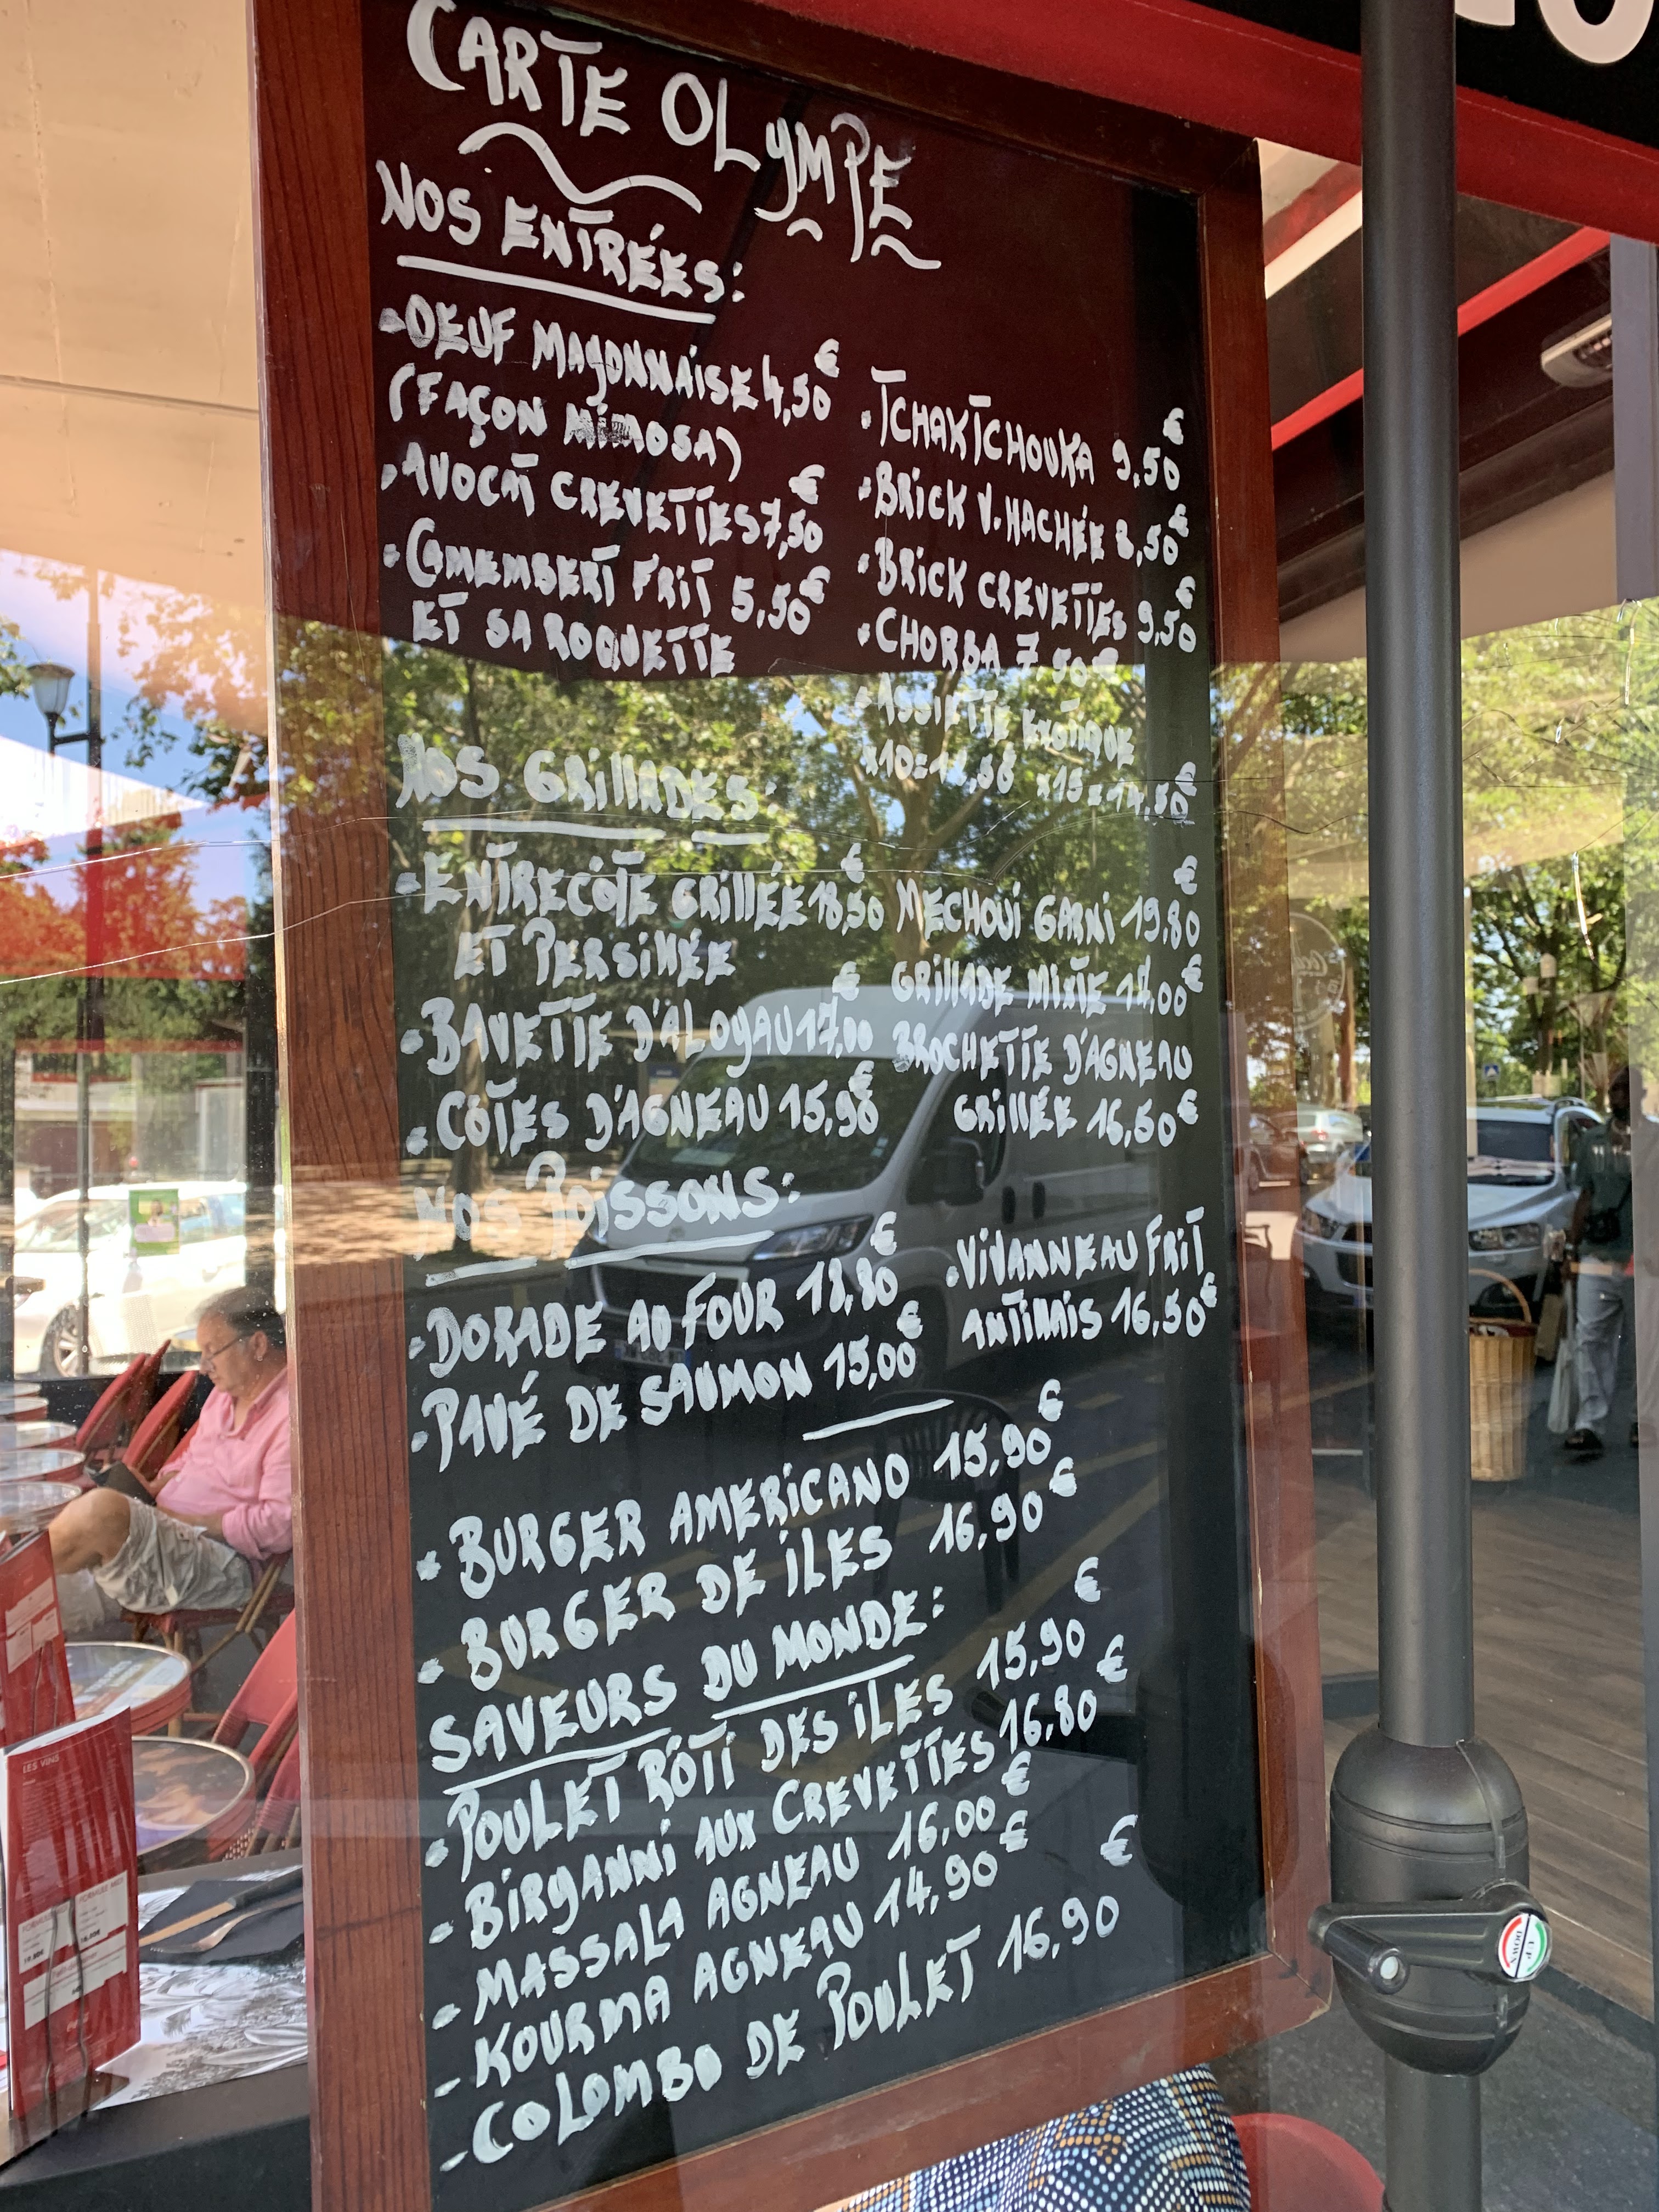 CARTE OLYMPE
NOS ENTRÉES:
-OEUF MAYONNAISE 4,50€
(FAÇON MIMOSA)
-AVOCAT CREVETTES 7,50€
-CAMEMBERT FRIT 5,50€
ET SA ROQUETTE
.TCHAKTCHOUKA 9,50€
.BRICK V.HACHÉE 8,50€
.BRICK CREVETTES 9,50€
.CHORBA 7,50€
-ASSIETTE EXOTIQUE
NOS GRILLADES:
-ENTRECÔTE GRILLÉE 18,50€
ET PERSILLÉE
-BAVETTE D'ALOYAU 17,00€
-CÔTES D'AGNEAU 15,90€
MECHOUI GARNI 19,80€
GRILLADE MIXTE
BROCHETTE D'AGNEAU
GRILLÉE 16,60€
NOS POISSONS:
-DORADE AU FOUR
-PAVÉ DE SAUMON 15,00€
.VIVANNEAU FRIT
ANTILLAIS 16,50€
-BURGER AMERICANO 15,90€
-BURGER DE ÎLES 16,90€
SAVEURS DU MONDE:
-POULET RÔTI DES ÎLES 15,90€
-BIRYANNI AUX CREVETTES 16,80€
-MASSALA AGNEAU 16,00€
-KOURMA AGNEAU 14,90€
-COLOMBO DE POULET 16,90€
LES VINS
UP
DOWN